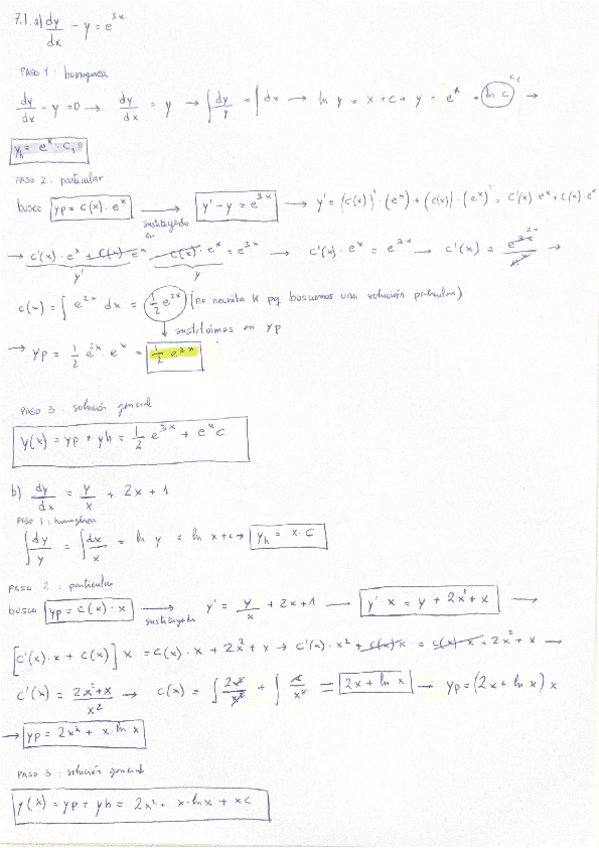 7.1. a) dy/dx - y = e^{3x}
PASO 1: homogénea
dy/dx - y = 0 → dy/dx = y → ∫ dy/y = ∫ dx → ln y = x + c → y = e^x · ln c c₁ →
y_h = e^x · c₁
PASO 2: particular
busco yp = c(x) · e^x → sustituyendo en y' - y = e^{3x} → y' = (c(x))' · (e^x) + (c(x)) · (e^x)' = c'(x) · e^x + c(x) · e^x
→ c'(x) · e^x + c(x) · e^x - c(x) · e^x = e^{3x} → c'(x) · e^x = e^{3x} → c'(x) = e^{3x}/e^x 2x →
y' y
c(x) = ∫ e^{2x} dx = 1/2 e^{2x} (no necesita k pq buscamos una solución particular)
↓ sustituimos en yp
→ yp = 1/2 e^{2x} · e^x = 1/2 e^{3x}
PASO 3: solución general
y(x) = yp + yh = 1/2 e^{3x} + e^x c
b) dy/dx = y/x + 2x + 1
PASO 1: homogénea
∫ dy/y = ∫ dx/x = ln y = ln x + c → y_h = x · c
PASO 2: particular
busco yp = c(x) · x → sustituyendo y' = y/x + 2x + 1 — y' · x = y + 2x² + x →
[c'(x) · x + c(x)] x = c(x) · x + 2x² + x → c'(x) · x² + c(x) x = c(x) · x + 2x² + x —
c'(x) = 2x² + x / x² → c(x) = ∫ 2x²/x² + ∫ x/x² = 2x + ln x — yp = (2x + ln x) x
→ yp = 2x² + x · ln x
PASO 3: solución general
y(x) = yp + yh = 2x² + x · ln x + xc